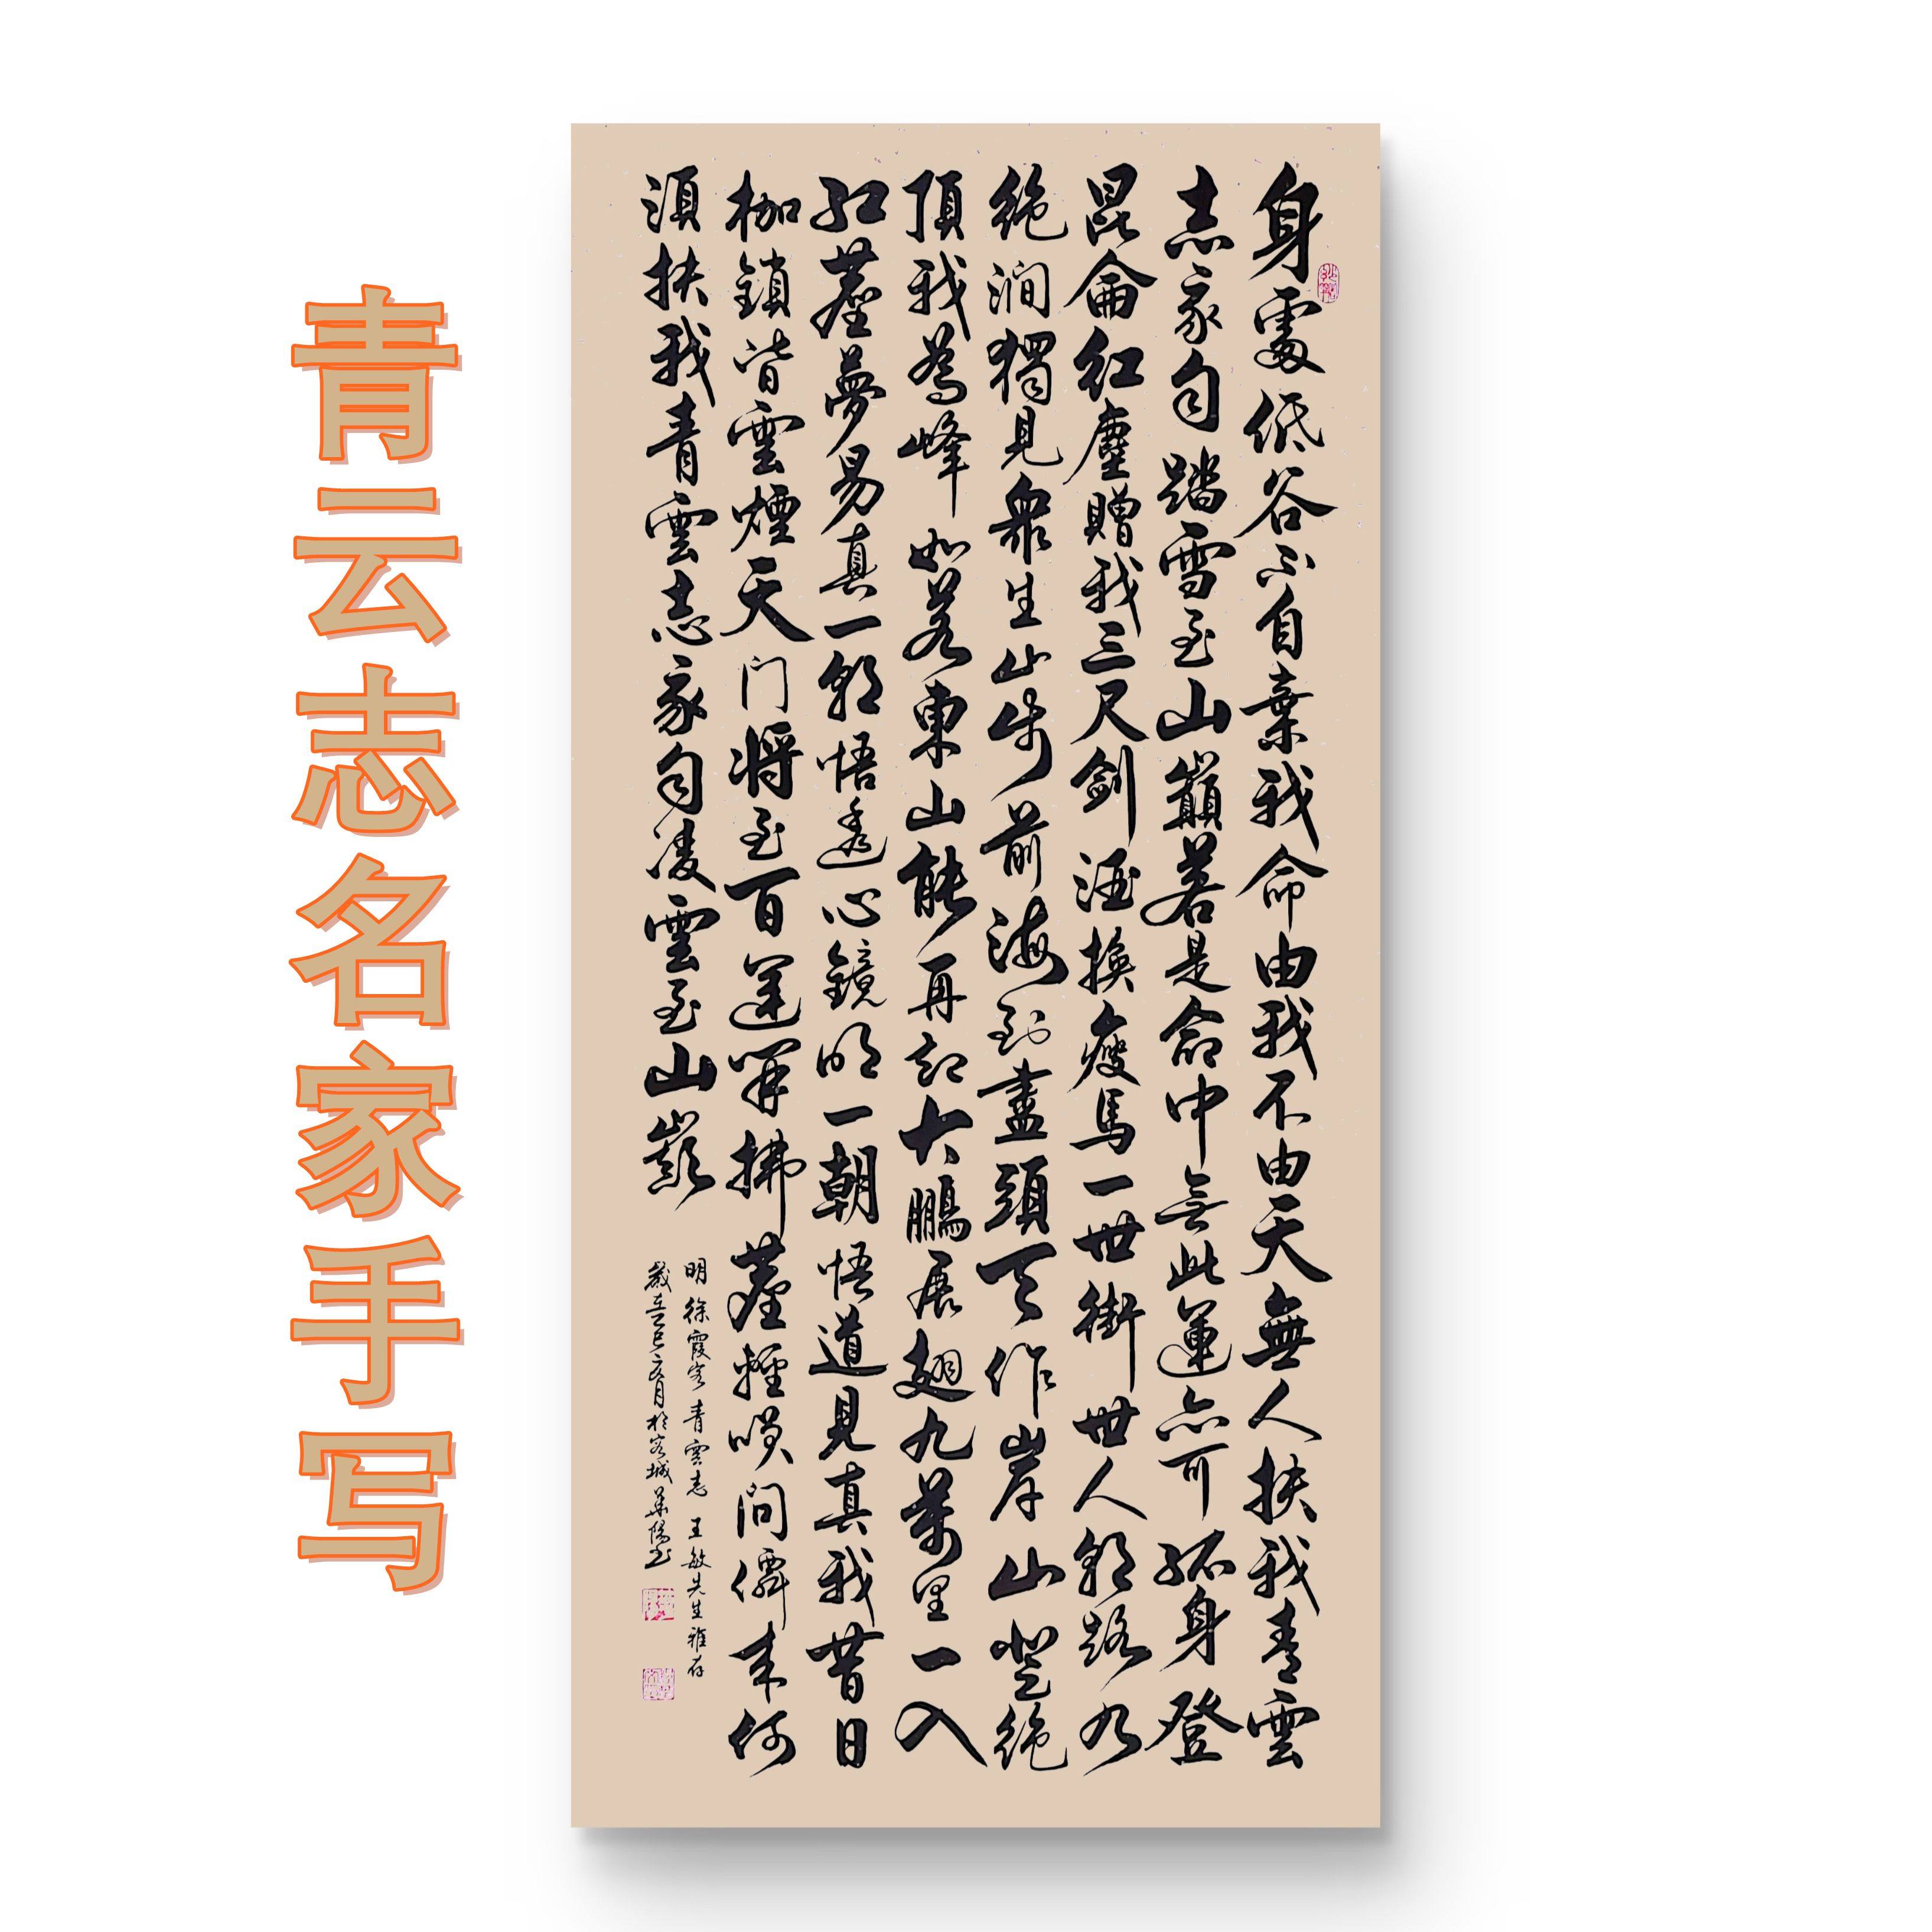 身處低谷不自棄我命由我不由天無人扶我青雲
志我自踏雪至山巔若是命中無此運亦可孤身登
昆侖紅塵贈我三尺劍酒換瘦馬一世街世人朝路乃
絕澗獨見衆生止步前海到盡頭天作岸山登絕
頂我為峰如若東山能再起大鵬展翅九萬里一入
紅塵夢易真一朝悟透心鏡明一朝悟道見真我昔日
枷鎖皆雲煙天門將至百運開拂塵輕嘆間僊來何
須扶我青雲志我自凌雲至山巔
明徐霞客青雲志 王敏先生雅存
歲在乙巳六月於容城
青云志名家手写